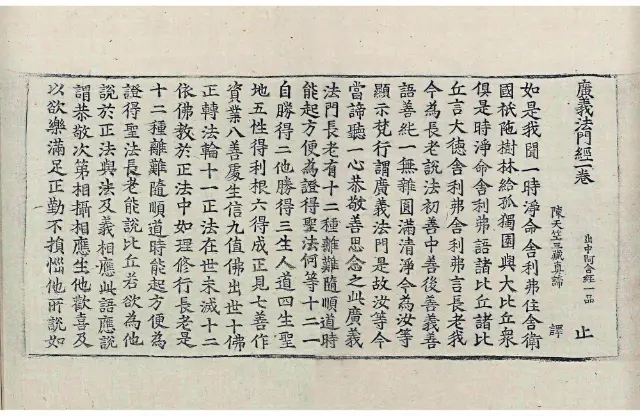 廣義法門經一卷
出中阿含經一品 止
陳天竺三藏真諦 譯
如是我聞一時淨命舍利弗住舍衛
國祇陁樹林給孤獨園與大比丘衆
俱是時淨命舍利弗語諸比丘諸比
丘言大德舍利弗舍利弗言長老我
今為長老說法初善中善後善義善
語善純一無雜圓滿清淨今為汝等
顯示梵行謂廣義法門是故汝等今
當諦聽一心恭敬善思念之此廣義
法門長老有十二種離難隨順道時
能起方便為證得聖法何等十二一
自勝得二他勝得三生人道四生聖
地五性得利根六得成正見七善作
資業八善處生信九值佛出世十佛
正轉法輪十一正法在世未滅十二
依佛教於正法中如理修行長老是
十二種離難隨順道時能起方便為
證得聖法長老能說比丘若欲為他
說於正法與法及義相應此語應說
謂恭敬次第相攝相應生他歡喜及
以欲樂滿足正勤不損惱他所說如